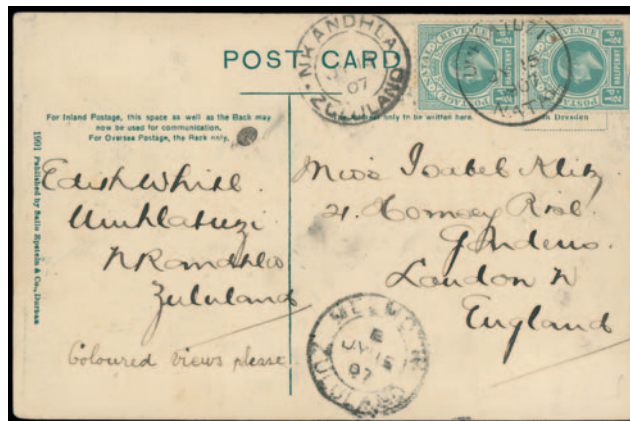 POST CARD
NKANDHLA
07
ZULULAND
NATAL
POSTAGE
REVENUE
HALFPENNY
For Inland Postage, this space as well as the Back may
now be used for communication.
For Oversea Postage, the Back only.
only to be written here.
Dresden
1991 Published by Sallo Epstein & Co., Durban
Edith White
Umhlatuzi
Nkandhla
Zululand
Coloured views please
Miss Isabel
21. Hornsey Rise
Gardens.
London N
England
MELMOTH
E
JY 15
07
ZULULAND